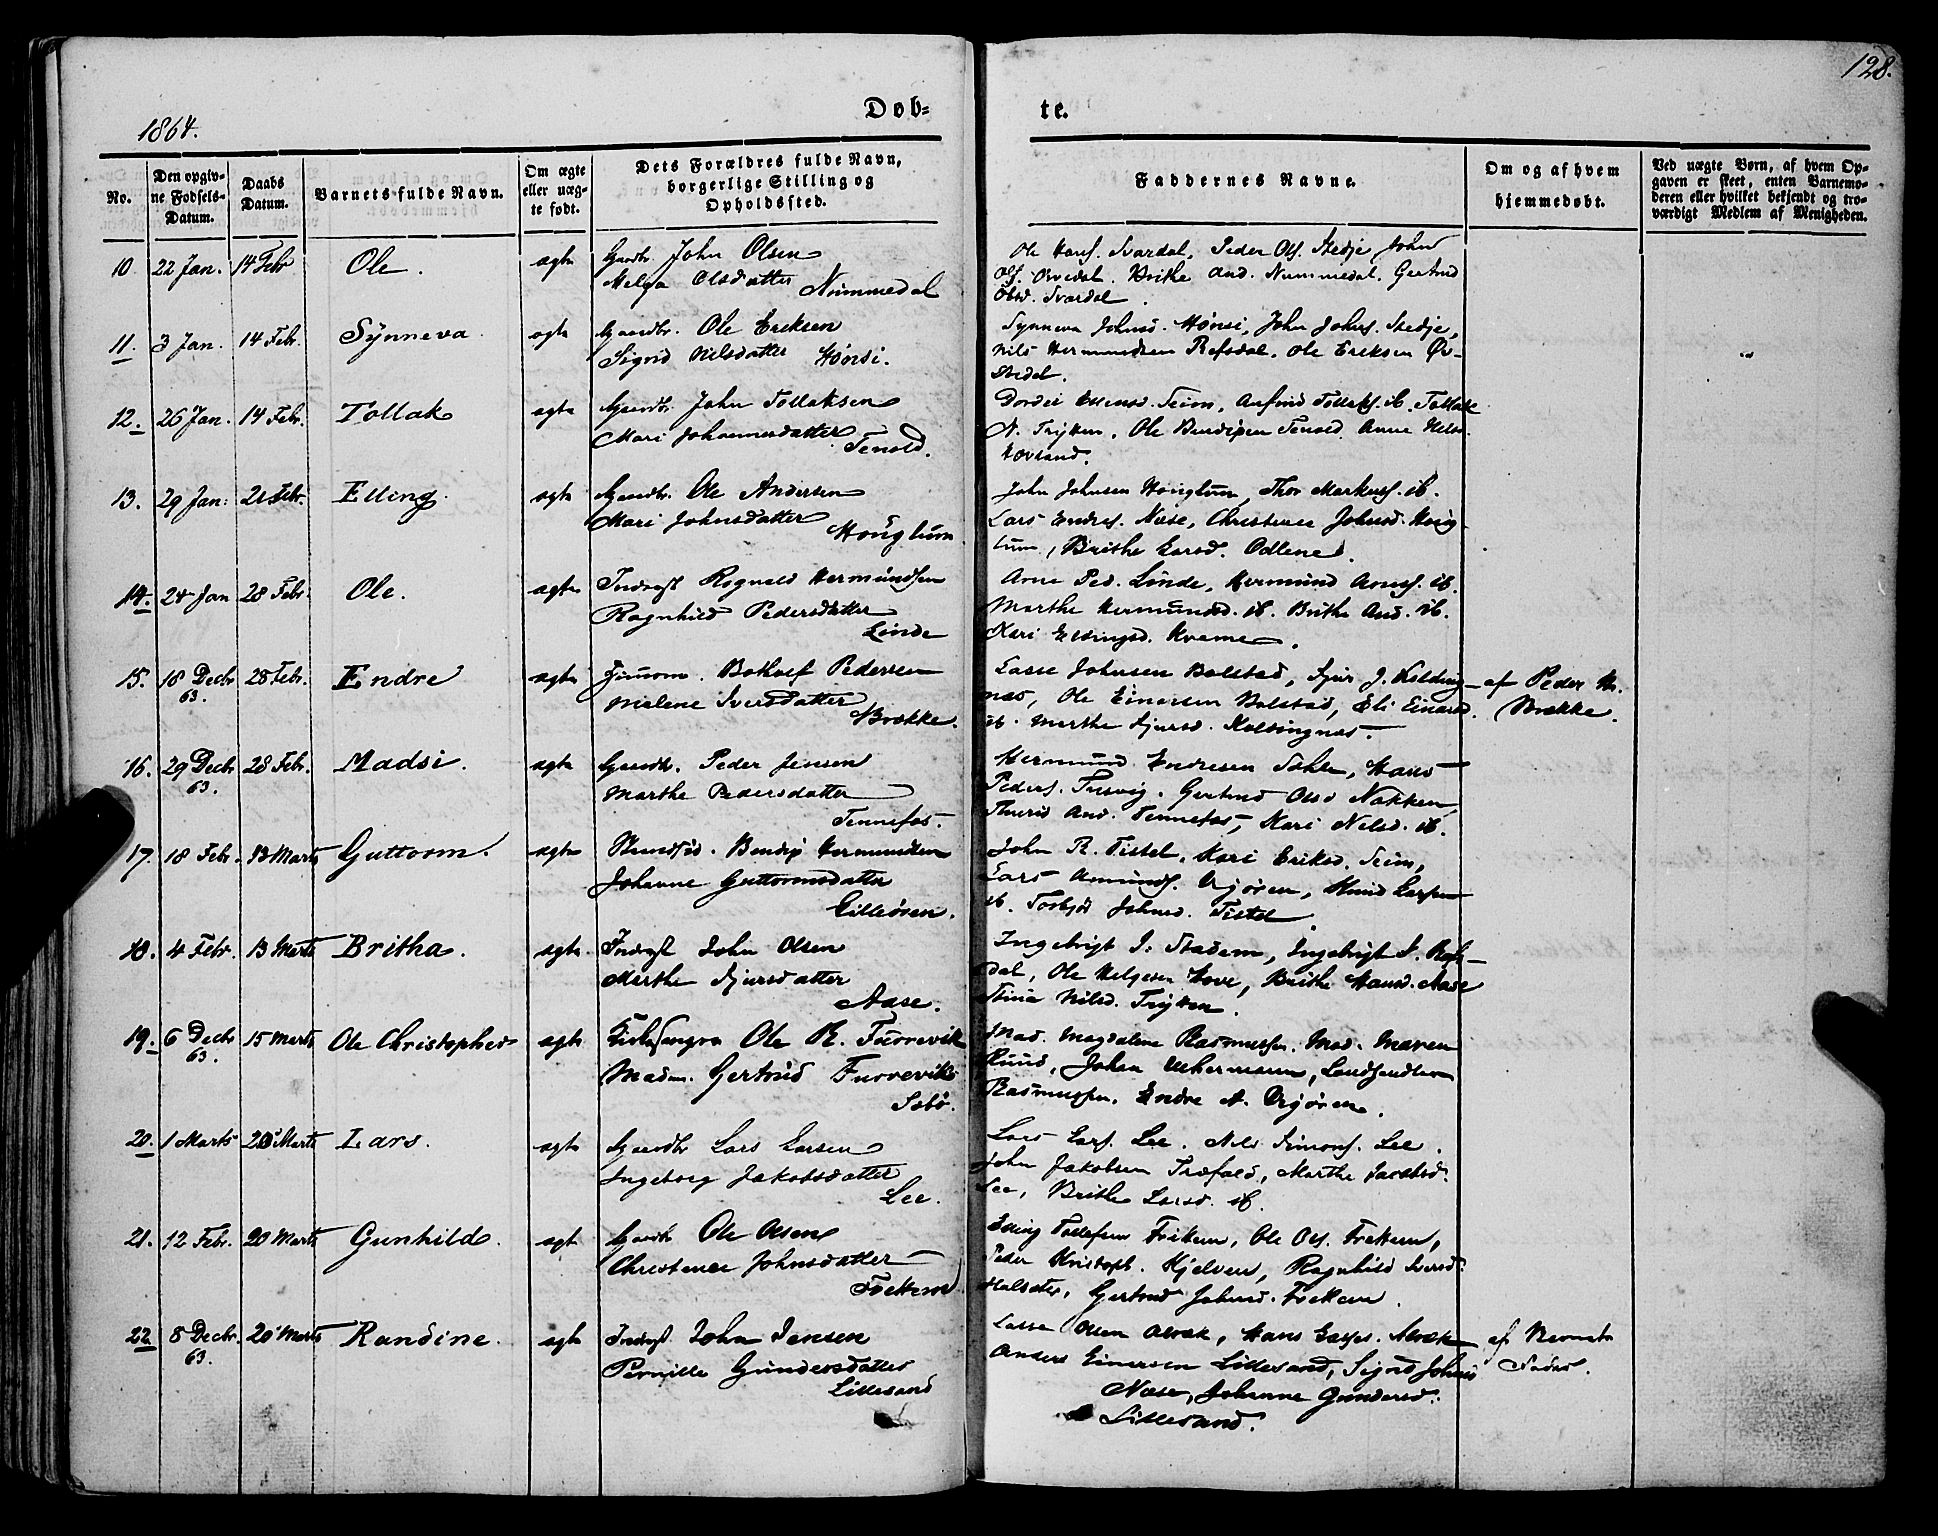 128.
1864.
Døb=
te.
No.
Den opgiv-
ne Fødsels-
Datum.
Daabs
Datum.
Barnets fulde Navn.
Om ægte
eller uæg-
te født.
Dets Forældres fulde Navn,
borgerlige Stilling og
Opholdssted.
Faddernes Navne.
Om og af hvem
hjemmedøbt.
Ved uægte Børn, af hvem Op-
gaven er skeet, enten Barnemo-
deren eller hvilket bekjendt og tro-
værdigt Medlem af Menigheden.
10 22 Jan. 14 Febr Ole. ægte Gaardbr. John Olsen
Helga Olsdatter Nummedal
Ole Hans. Svardal, Peder Ols. Stedje John
Ols. Brithe And. Nummedal. Gertrud
Olsd. Svardal.
11 3 Jan. 14 Febr. Synneva. ægte Gaardbr. Ole Eriksen
Sigrid Nilsdatter Hønsi.
Synneva Johnsd. Hønsi, John Johns. Stedje,
Nils Hermundsen Refsdal. Ole Eriksen Øv-
stedal.
12. 26 Jan. 14 Febr. Tollak ægte Gaardbr. John Tollaksen
Mari Johannesdatter
Tenold.
Seim, Anfind Tollaks. ib. Tollak
N. Tryken, Ole Bendixen Tenold. Anna Nelsd.
Hovland.
13. 29 Jan: 21 Febr. Elling. ægte Gaardbr. Ole Andersen
Mari Johnsdatter
Hougtum
John Johnsen Hougtum, Thor Markuss. ib.
Lars Endres. Næse, Christense Johnsd. Houg-
tum, Brithe Larsd. Odlene.
14. 24 Jan 28 Febr. Ole. ægte Inderst Rognald Hermundsen
Ragnhild Pedersdatter
Linde
Arne Ped. Linde, Hermund Arnes. ib.
Marthe Hermundsd. ib. Brithe And. ib.
Kari Ellingsd. Kvame.
15. 18 Decbr 63. 28 Febr. Endre ægte Huusm. Botholf Pedersen
Malene Iversdatter
Brække.
Lasse Johnsen Bolstad, Sjur J. Kolding-
næs, Ole Einarsen Bolstad, Eli Einarsd.
ib. Marthe Sjursd. Koldingnæs.
af Peder
Brække.
16. 29 Decbr 63. 28 Febr. Madsi. ægte Gaardbr. Peder Jensen
Marthe Pedersdatter
Tennefos.
Hermund Endresen Hans
Peders. Gertrud Olsd Nokken,
Thurid And. Tennefos, Kari Nilsd. ib.
17. 18 Febr. 13 Marts Guttorm. ægte Strandsid. Bendix Hermundsen
Johanne Guttormsdatter
Lilleøren.
John R. Tistel, Kari Eriksd. Seim,
Lars Amunds. Ørjøren, Knud Larsen
ib. Torbjør Johnsd. Tistel
18. 4 Febr. 13 Marts Britha. ægte Inderst John Olsen
Marthe Sjursdatter
Aase.
Ingebrigt I. Stadem, Ingebrigt S. Refs-
dal, Ole Helgesen Hove, Brithe Hansd. Aase
Stina Nilsd. Tryken.
19. 6 Decbr 63. 15 Marts Ole Christopher ægte Kirkesanger Ole R. Turrevik
Madm. Gertrud Furrevik
Sæbø.
Mad. Magdalene Rasmussen. Mad. Maren
Ruud, Johan Uchermann, Landhandler
Rasmussen, Endre A. Ørjøren.
20. 1 Marts 20 Marts Lars. ægte Gaardbr Lars Larsen
Ingeborg Jakobsdatter
Lee.
Lars Lars. Lee. Nils Simons. Lee.
John Jakobsen Træfald, Marthe Jacobsd.
Lee, Brithe Larsd. ib.
21. 12 Febr. 20 Marts Gunhild. ægte Gaardb Ole Olsen
Christense Johnsdatter
Frekem
Elling Tollefsen Frekem, Ole Ols. Frekem,
Peder Kristoph. Hjelven, Ragnhild Iversd.
Halsæter, Gertrud Johnsd. Frekem.
22 8 Decbr. 63. 20 Marts Randine. ægte Inderst John Jensen
Pernille Gundersdatter
Lillesand
Lasse Olsen Alræk, Hans Lasses. Alræk
Anders Einersen Lillesand, Sigrid Johnsd
Næse, Johanne Gundersd.
Lillesand.
af Barnets
Fader.